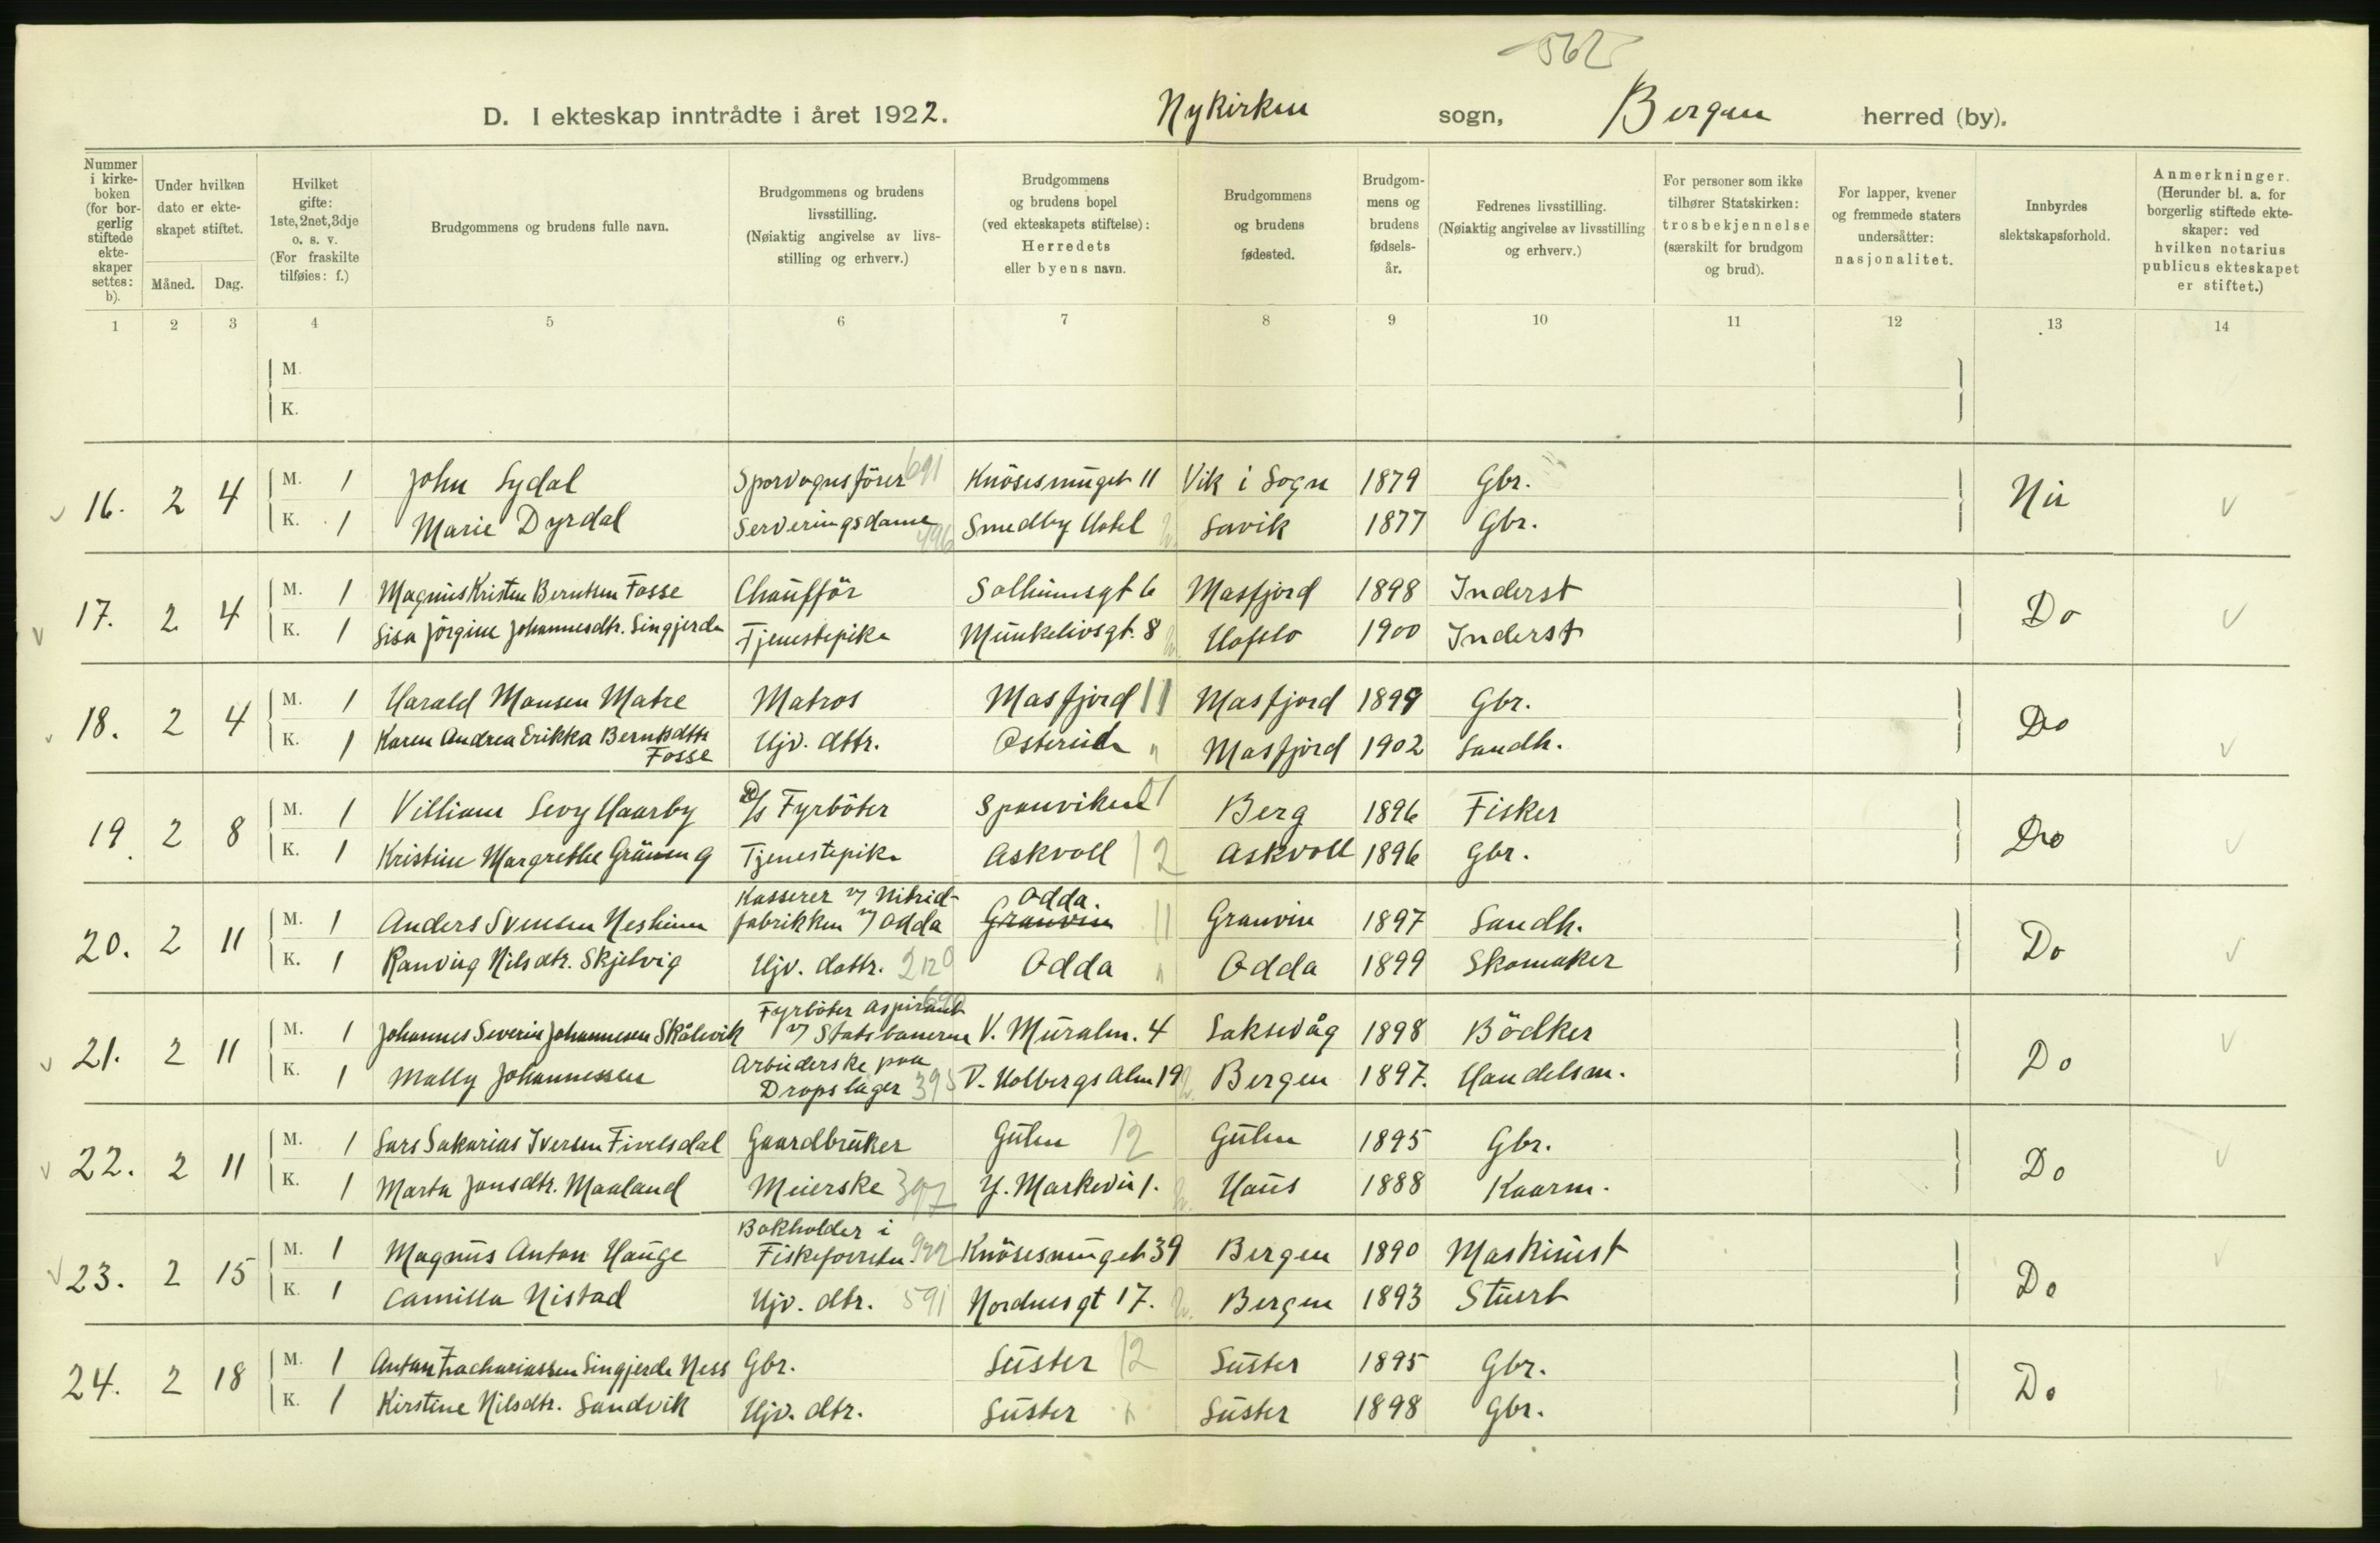 562
D. I ekteskap inntrådte i året 1922. Nykirken sogn, Bergen herred (by).
Nummer i kirke-boken (for bor-gerlig stiftede ekte-skaper settes: b).
Under hvilken dato er ekte-skapet stiftet.
Måned. Dag.
Hvilket gifte: 1ste, 2net, 3dje o. s. v. (For fraskilte tilføies: f.)
Brudgommens og brudens fulle navn.
Brudgommens og brudens livsstilling. (Nøiaktig angivelse av livs-stilling og erhverv.)
Brudgommens og brudens bopel (ved ekteskapets stiftelse): Herredets eller byens navn.
Brudgommens og brudens fødested.
Brudgom-mens og brudens fødsels-år.
Fedrenes livsstilling. (Nøiaktig angivelse av livsstilling og erhverv.)
For personer som ikke tilhører Statskirken: trosbekjennelse (særskilt for brudgom og brud).
For lapper, kvener og fremmede staters undersåtter: nasjonalitet.
Innbyrdes slektskapsforhold.
Anmerkninger. (Herunder bl. a. for borgerlig stiftede ekte-skaper: ved hvilken notarius publicus ekteskapet er stiftet.)
1 2 3 4 5 6 7 8 9 10 11 12 13 14
M.
K.
16. 2 4 M. 1 John Lydal Sporvognsförer 691 Knösesmuget 11 Vik i Sogn 1879 Gbr. Nei
K. 1 Marie Dyrdal Serveringsdame 496 Smedby Hotel Lavik 1877 Gbr.
17. 2 4 M. 1 Magnus Kristen Berntsen Fosse Chaufför Solheimsgt 6 Masfjord 1898 Inderst Do
K. 1 Lisa Jörgine Johannesdtr. Lingjerde Tjenestepike Munkelivsgt. 8 Hafslo 1900 Inderst
18. 2 4 M. 1 Harald Monsen Matre Matros Masfjord 11 Masfjord 1899 Gbr. Do
K. 1 Karen Andrea Erikka Berntsdttr Fosse Hjv. dttr. Ostereide " Masfjord 1902 Landh.
19. 2 8 M. 1 Villiam Levy Haarby D/s Fyrböter Spanviken 01 Berg 1896 Fisker Do
K. 1 Kristine Margrethe Gräneng Tjenestepike Askvoll 12 Askvoll 1896 Gbr.
20. 2 11 M. 1 Anders Svensen Nesheim Kasserer v/ Nitrid-fabrikken v/ Odda Odda. Granvin 11 Granvin 1897 Landh. Do
K. 1 Ranveig Nilsdtr. Skjelvig Hjv. dattr. 2120 Odda " Odda 1899 Skomaker
21. 2 11 M. 1 Johannes Severin Johannesen Skålevik Fyrböter Aspirant v/ Statsbanerne 690 V. Muralm. 4 Laksevåg 1898 Bödker Do
K. 1 Mally Johannessen Arbeiderske paa Dropslager 395 V. Holbergs Alm 19 Bergen 1897. Handelsm.
22. 2 11 M. 1 Lars Sakarias Iversen Fivelsdal Gaardbruker Gulen 12 Gulen 1895 Gbr. Do
K. 1 Marta Jonsdtr. Maaland Meierske 397 Y. Markevei 1. Haus 1888 Kaarm.
23. 2 15 M. 1 Magnus Anton Hauge Bokholder i Fiskeforretn. 922 Knösesmuget 39 Bergen 1890 Maskinist Do
K. 1 Camilla Nistad Hjv. dtr. 591 Nordnesgt 17. Bergen 1893 Stuert
24. 2 18 M. 1 Anton Zachariassen Lingjerde Ness Gbr. Luster 12 Luster 1895 Gbr. Do
K. 1 Kirstine Nilsdtr. Sandvik Hjv. dtr. Luster " Luster 1898 Gbr.